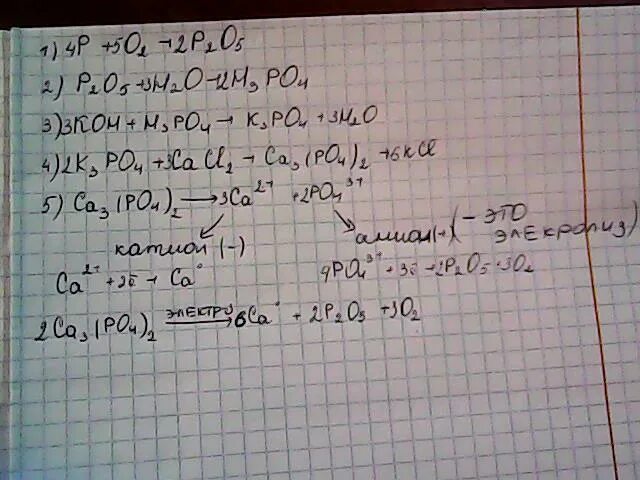 1) 4P + 5O₂ → 2P₂O₅
2) P₂O₅ + 3H₂O → 2H₃PO₄
3) 3KOH + H₃PO₄ → K₃PO₄ + 3H₂O
4) 2K₃PO₄ + 3CaCl₂ → Ca₃(PO₄)₂ + 6KCl
5) Ca₃(PO₄)₂ → 3Ca²⁺ + 2PO₄³⁺
катион (-) анион (+) (- ЭТО ЭЛЕКРОЛИЗ)
Ca²⁺ + 2ē → Ca° 4PO₄³⁺ + 3ē → 2P₂O₅ + 3O₂
2Ca₃(PO₄)₂ ЭЛЕКТРО → 6Ca° + 2P₂O₅ + 3O₂